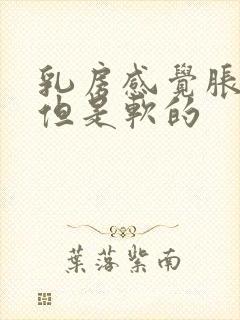 乳房感覺脹
但是軟的
葉落紫南